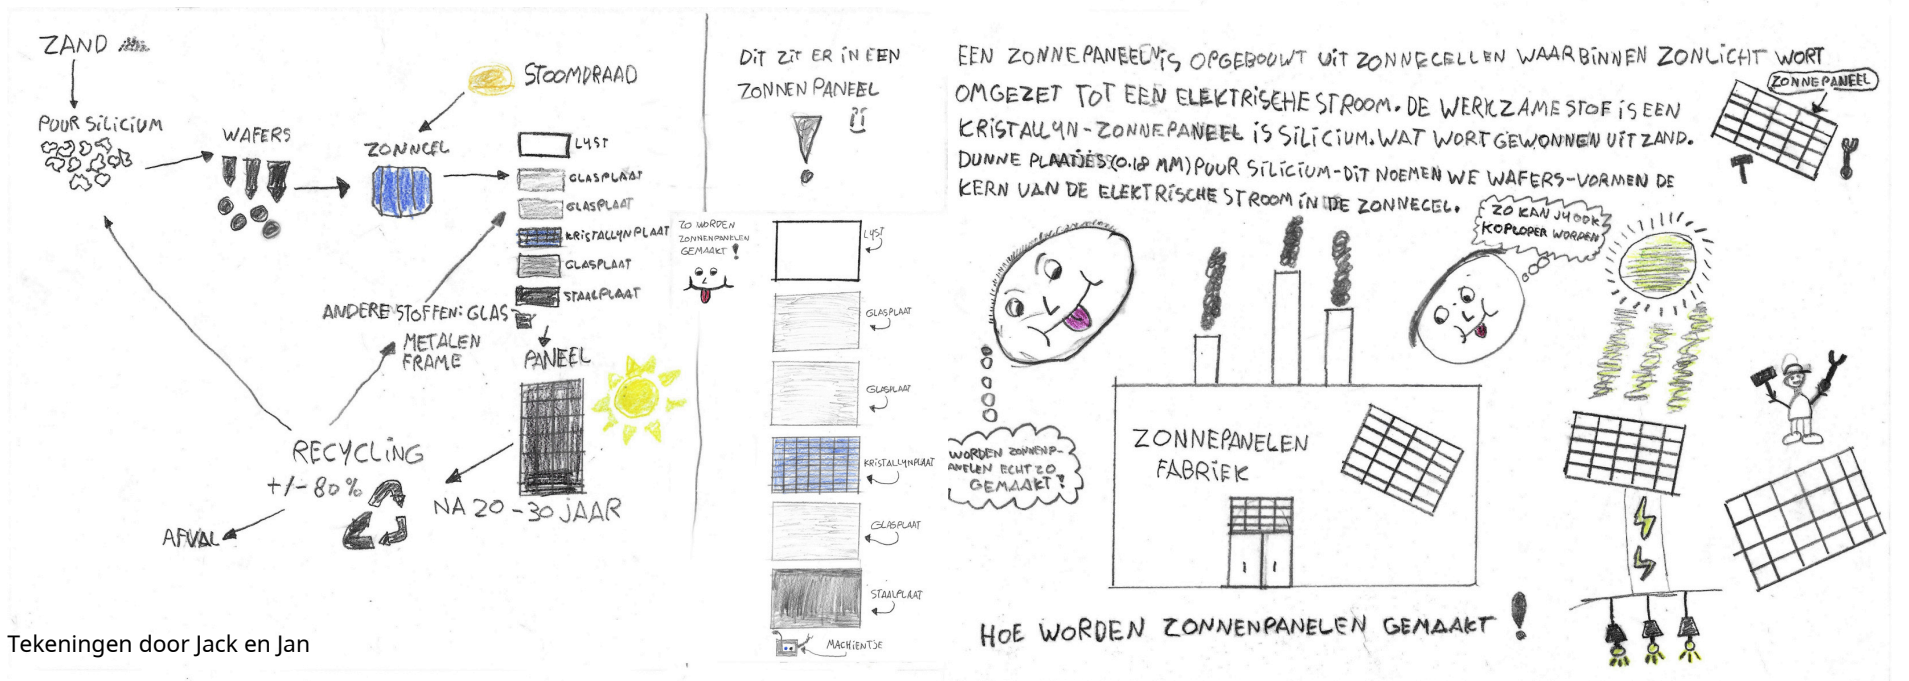 ZAND
PUUR SILICIUM
WAFERS
ZONNCEL
STOOMDRAAD
LYST
GLASPLAAT
GLASPLAAT
KRISTALLYNPLAAT
GLASPLAAT
STAALPLAAT
ANDERE STOFFEN: GLAS
METALEN
FRAME
PANEEL
RECYCLING
+/- 80%
NA 20-30 JAAR
AFVAL
Tekeningen door Jack en Jan
DIT ZIT ER IN EEN
ZONNEN PANEEL
!
ZO WORDEN
ZONNENPANELEN
GEMAAKT!
LYST
GLASPLAAT
GLASPLAAT
KRISTALLYNPLAAT
GLASPLAAT
STAALPLAAT
MACHIENTJE
EEN ZONNEPANEEL IS OPGEBOUWT UIT ZONNECELLEN WAARBINNEN ZONLICHT WORT
OMGEZET TOT EEN ELEKTRISCHE STROOM. DE WERKZAME STOF IS EEN
KRISTALLYN-ZONNEPANEEL IS SILICIUM. WAT WORT GEWONNEN UIT ZAND.
DUNNE PLAATJES (0.18 MM) PUUR SILICIUM-DIT NOEMEN WE WAFERS-VORMEN DE
KERN VAN DE ELEKTRISCHE STROOM IN DE ZONNECEL.
ZONNEPANEEL
ZO KAN JY OOK
KOPLOPER WORDEN
WORDEN ZONNENP-
ANELEN ECHT ZO
GEMAAKT?
ZONNEPANELEN
FABRIEK
HOE WORDEN ZONNENPANELEN GEMAAKT !